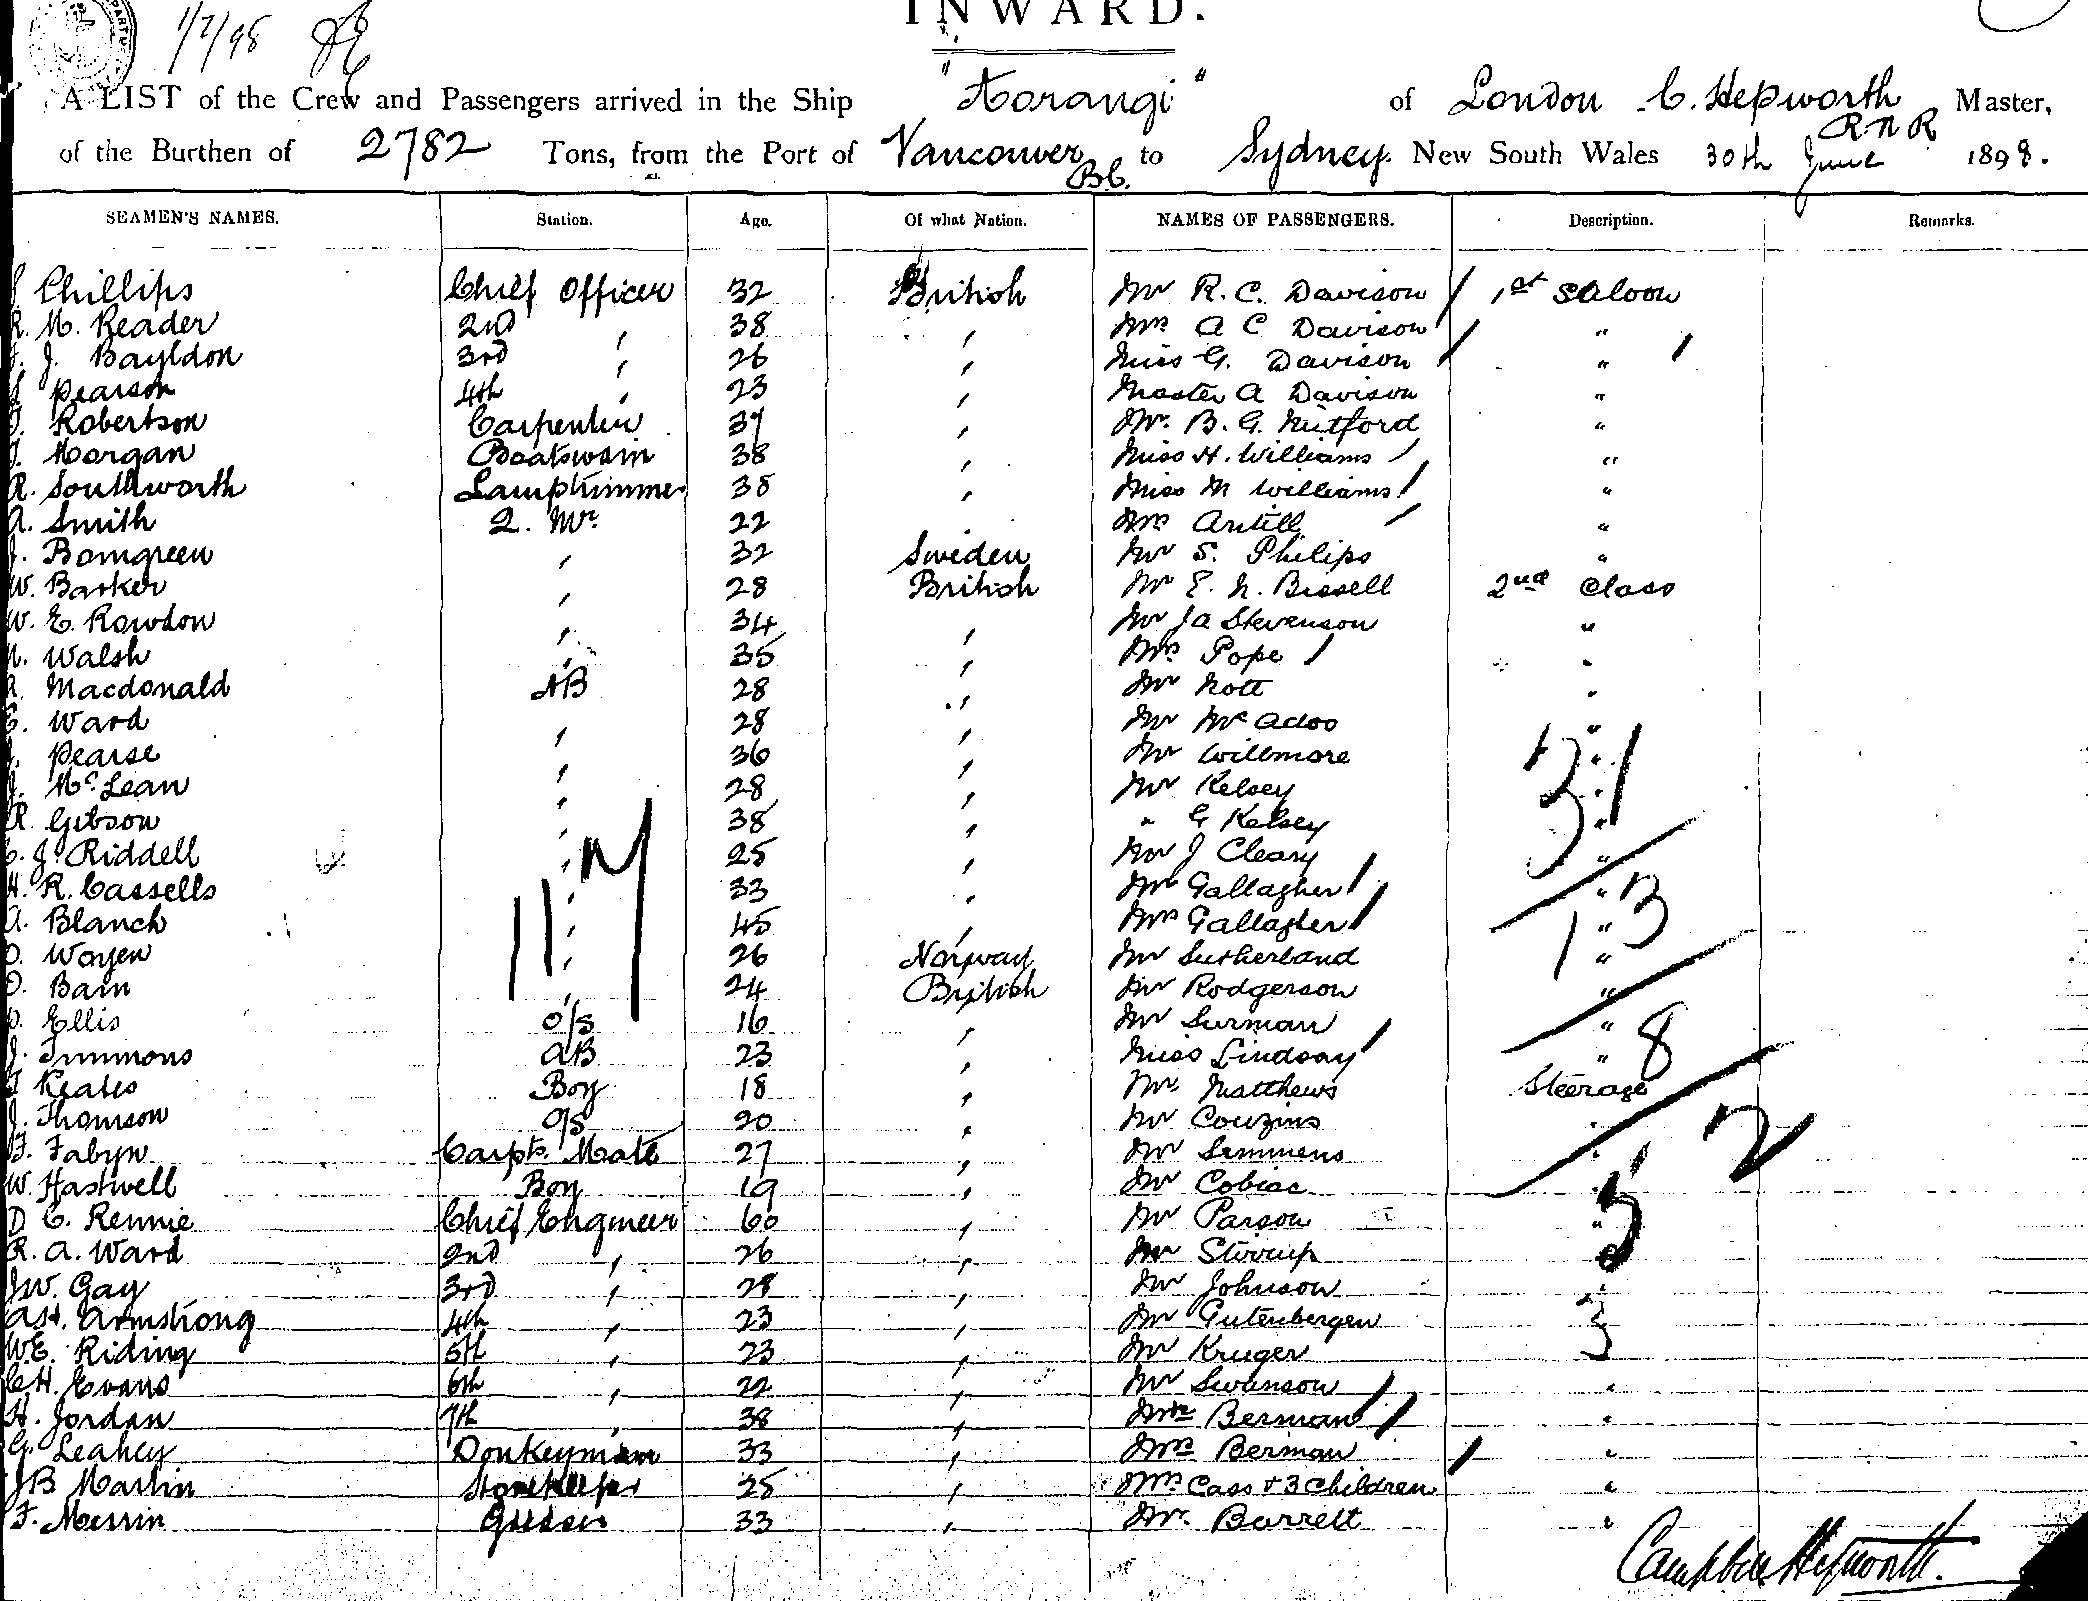 INWARD.
1/7/98
A LIST of the Crew and Passengers arrived in the Ship "Aorangi" of London C. Hepworth Master,
R N R
of the Burthen of 2782 Tons, from the Port of Vancouver B.C. to Sydney New South Wales 30th June 1898.
SEAMEN'S NAMES. Station. Age. Of what Nation. NAMES OF PASSENGERS. Description. Remarks.
Phillips Chief Officer 32 British Mr R. C. Davison 1st Saloon
R. M. Reader 2nd " 38 " Mrs A C Davison "
J. Bayldon 3rd " 26 " Miss G. Davison "
Pearson 4th " 23 " Master A Davison "
Robertson Carpenter 37 " Mr. B. G. Mitford "
Morgan Boatswain 38 " Miss H. Williams "
R. Southworth Lamptrimmer 38 " Miss M Williams "
A. Smith Q. Mr. 22 " Mrs Antill "
J. Bomgreen " 32 Sweden Mr S. Philips "
W. Barker " 28 British Mr E. N. Bissell 2nd Class
W. E. Rowdon " 34 " Mr J A Stevenson "
Walsh " 35 " Mrs Pope "
Macdonald AB 28 " Mr Nott "
Ward " 28 " Mr McAdoo "
Pearse " 36 " Mr Willmore "
J. McLean " 28 " Mr Kelsey "
R. Gibson " 38 " " G Kelsey "
C. J. Riddell " 25 " Mr J Cleary "
H. R. Cassells " 33 " Mr Gallagher "
A. Blanch " 45 " Mrs Gallagher "
O. Woyen " 26 Norway Mr Sutherland "
D. Bain " 24 British Mr Rodgerson "
Ellis O/S 16 " Mr Surman "
J. Simmons AB 23 " Miss Lindsay "
Keates Boy 18 " Mr. Matthews Steerage
J. Thomson O/S 20 " Mr Couzins "
F. Fabyn Carpts. Mate 27 " Mr Simmens "
W. Hastwell Boy 19 " Mr Cobiac "
D C. Rennie Chief Engineer 60 " Mr Parson "
R. A. Ward 2nd " 26 " Mr Stirrup "
J W. Gay 3rd " 28 " Mr Johnson "
Armstrong 4th " 23 " Mr Gutenbergen "
W. E. Riding 5th " 23 " Mr Kruger "
C H. Evans 6th " 22 " Mr Swanson "
H. Jordan 7th " 38 " Berman "
G. Leahey Donkeyman 33 " Mrs Berman "
J B Martin Storekeeper 25 " Mrs Cass & 3 Children "
F. Merrin Greaser 33 " Mr. Barrett "
117
31
13
8
2
Campbell Hepworth.